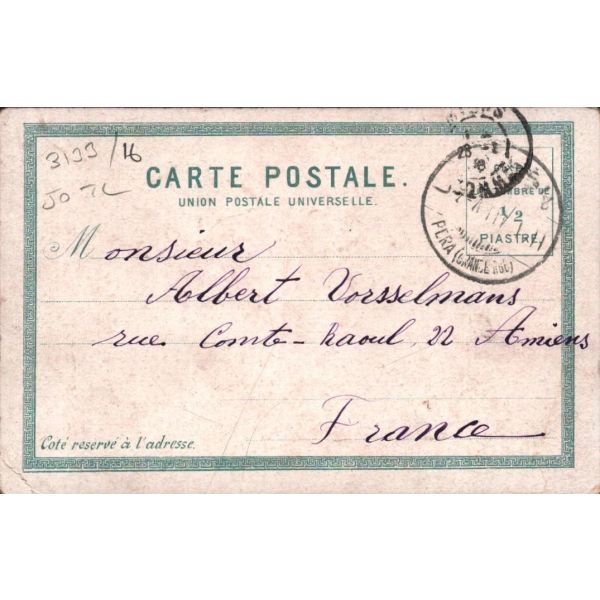 3133/16
50 TL
CARTE POSTALE.
UNION POSTALE UNIVERSELLE.
TIMBRE DE
1/2
PIASTRE
PERA (GRANDE RUE)
Monsieur
Albert Vorsselmans
rue Comte-Raoul, 22 Amiens
France
Coté reservé à l'adresse.